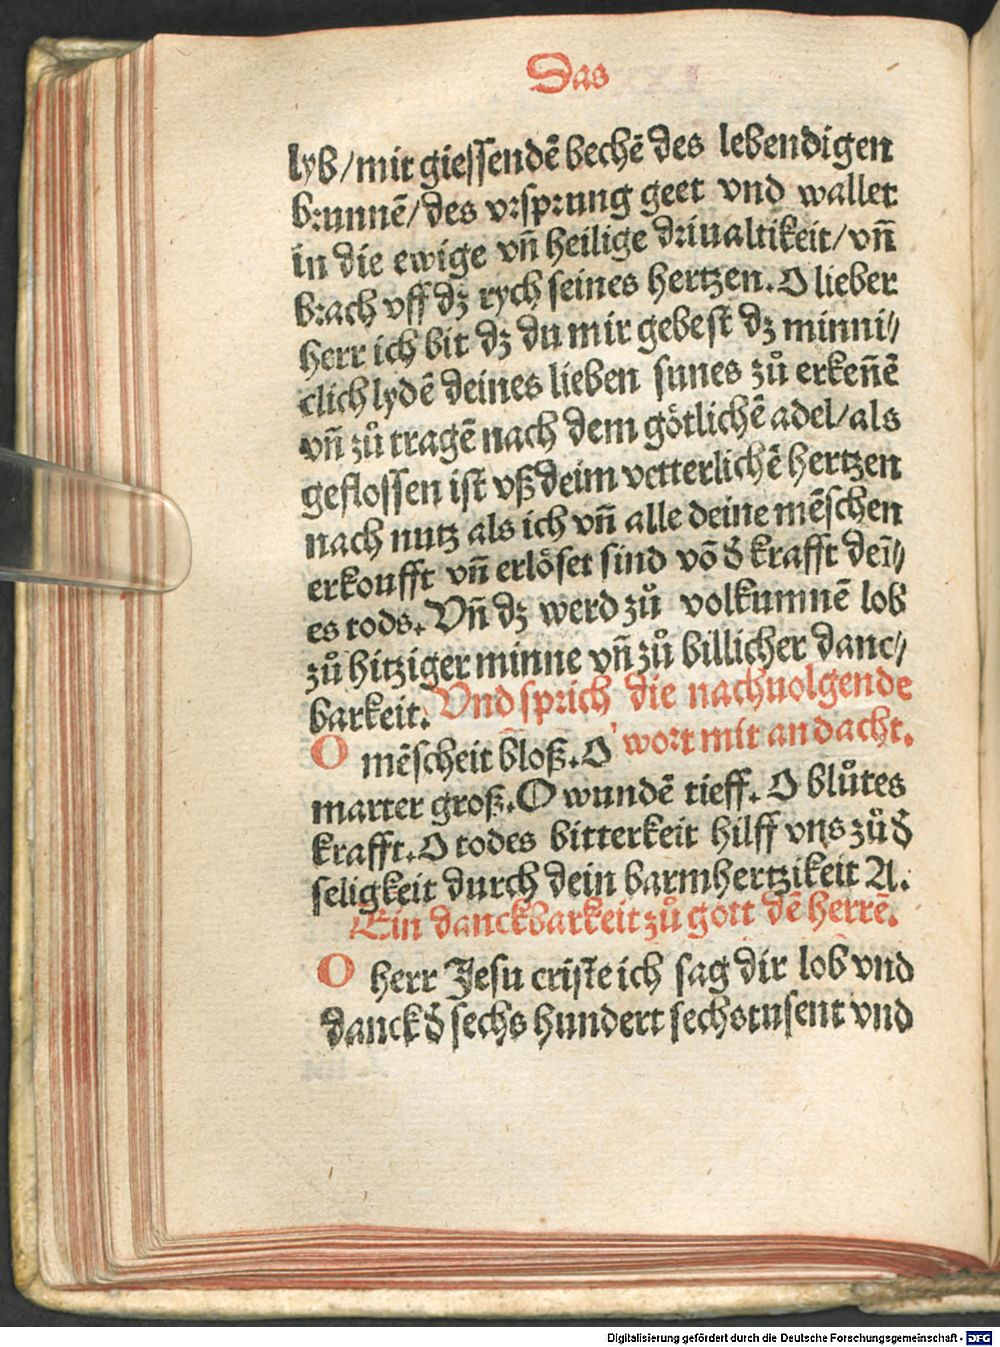 Das
lyb/mit giessendē bechē des lebendigen
brunnē/des vrsprung geet vnd wallet
in die ewige vn̄ heilige driualtikeit/vn̄
brach vff dʒ rych seines hertzen. O lieber
herr ich bit dʒ du mir gebest dʒ minni//
clich lydē deines lieben sunes zů erken̄ē
vn̄ zů tragē nach dem götlichē adel/als
geflossen ist vß deim vetterlichē hertzen
nach nutz als ich vn̄ alle deine mēschen
erkoufft vn̄ erlöset sind vō d̕ krafft dei̅//
es tods. Vn̄ dʒ werd zů volkumnē lob
zů hitziger minne vn̄ zů billicher danc//
barkeit. Vnd sprich die nachuolgende
wort mit andacht.
O mēscheit bloß. O
marter groß. O wundē tieff. O blůtes
krafft. O todes bitterkeit hilff vns zů d̕
seligkeit durch dein barmhertzikeit A.
Ein danckbarkeit zů gott dē herrē.
O herr Jesu criste ich sag dir lob vnd
danck d̕ sechs hundert sechstusent vnd
Digitalisierung gefördert durch die Deutsche Forschungsgemeinschaft - DFG